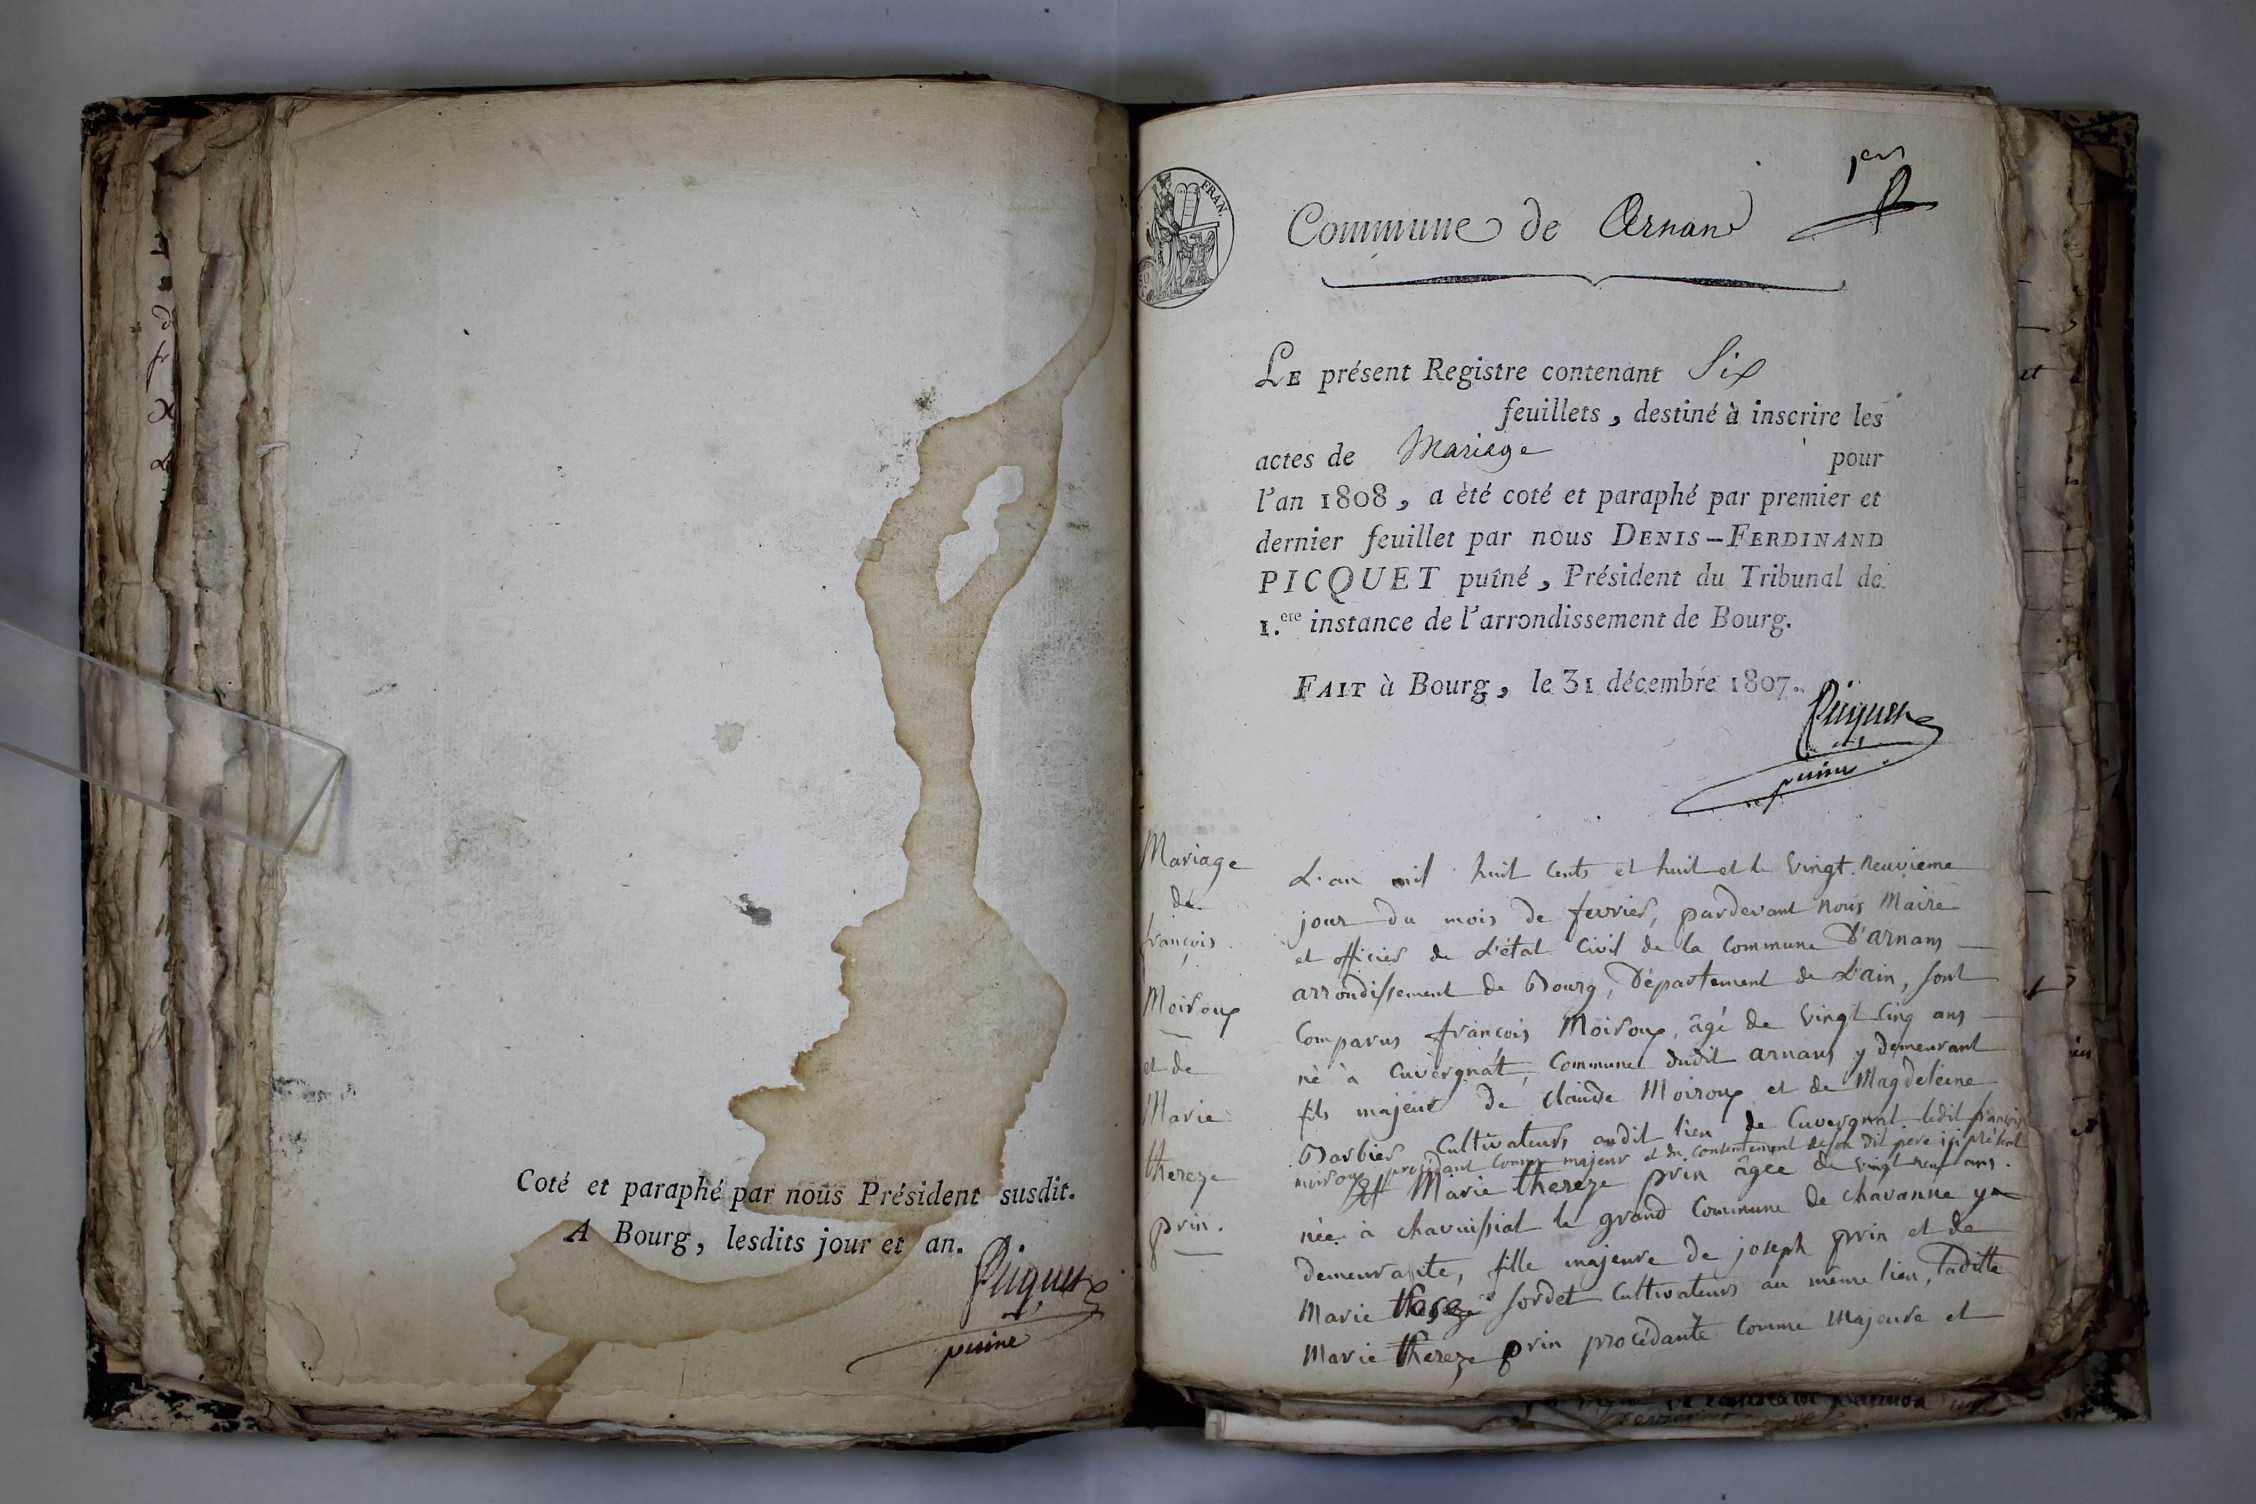 Coté et paraphé par nous Président susdit.
A Bourg, lesdits jour et an.
Picquet
puiné
FRAN.
1er
Commune de Arnans
LE présent Registre contenant Six
feuillets, destiné à inscrire les
actes de Mariage pour
l'an 1808, a été coté et paraphé par premier et
dernier feuillet par nous DENIS-FERDINAND
PICQUET puîné, Président du Tribunal de
1.ere instance de l'arrondissement de Bourg.
FAIT à Bourg, le 31 décembre 1807.
Picquet
puiné
Mariage
de
françois
Moiroux
et de
Marie
thereze
prin.
L'an mil huit Cents et huit et le vingt neuvieme
jour du mois de fevrier, pardevant nous Maire
et officier de L'état Civil de la Commune D'arnans
arrondissement de Bourg, Département de L'ain, sont
Comparus françois Moiroux, âgé de vingt Cinq ans
né à Cuvergnat, Commune dudit arnans y demeurant
fils majeur de Claude Moiroux et de Magdeleine
Barbier Cultivateurs audit lieu de Cuvergnat ledit françois
moiroux procédant Comme majeur et du Consentement de son dit père ici présent
Et Marie thereze prin âgée de vingt neuf ans.
née à chavuissiat le grand Commune de chavanne y
demeurante, fille majeure de joseph prin et de
Marie thereze sordet Cultivateurs au même lieu, Laditte
Marie thereze prin procédante Comme Majeure et